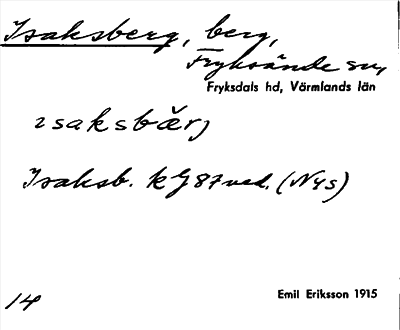 Isaksberg, berg,
Fryksände sn,
Fryksdals hd, Värmlands län
isaksbărj
Isaksb. kG 87 vad. (Nys)
14
Emil Eriksson 1915